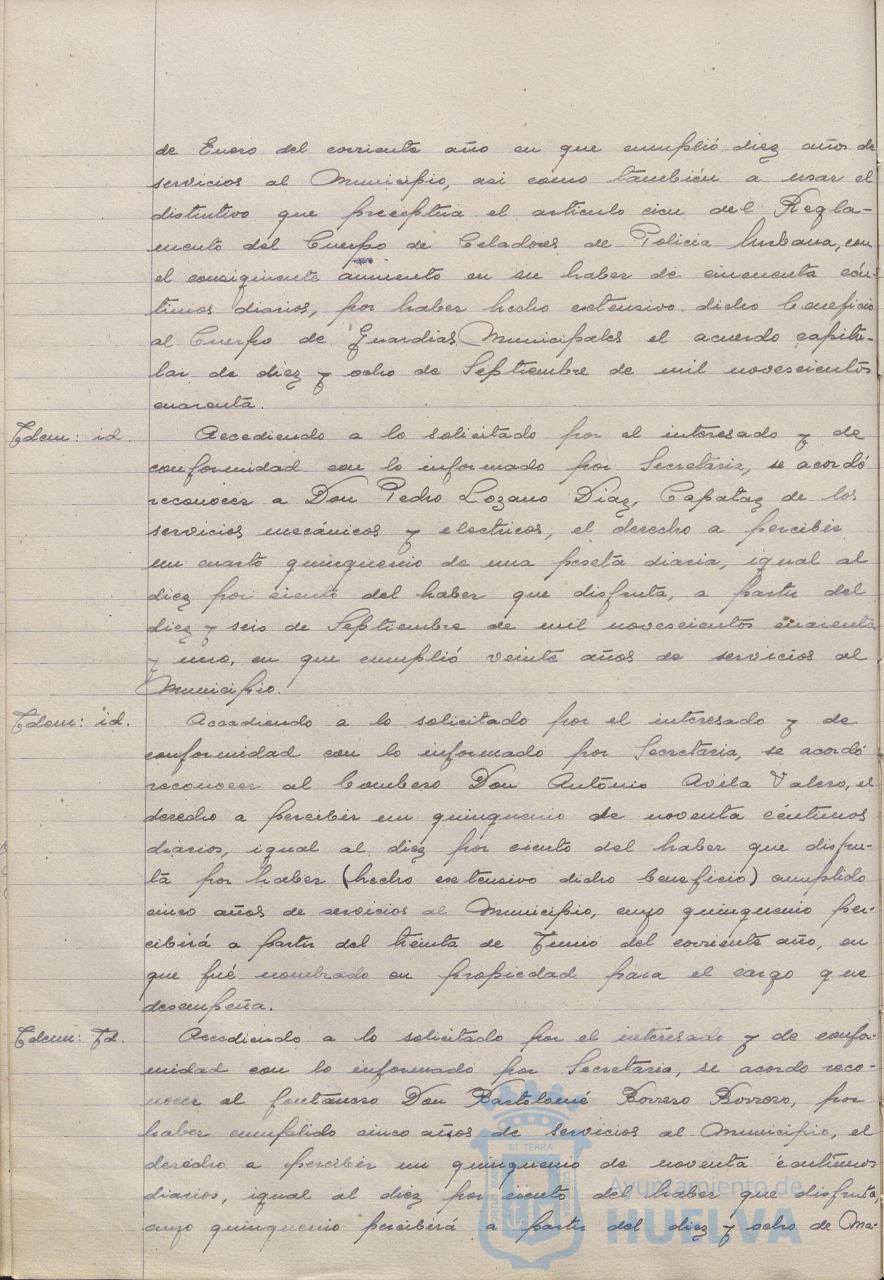 de Enero del corriente año en que cumplió diez años de
servicios al Municipio, asi como tambien a usar el
distintivo que preceptua el articulo cien del Regla-
mento del Cuerpo de Celadores de Policia Urbana, con
el consiguiente aumento en su haber de cincuenta cén-
timos diarios, por haber hecho extensivo dicho beneficio
al Cuerpo de Guardias Municipales el acuerdo capitu-
lar de diez y ocho de Septiembre de mil novescientos
cuarenta.
Idem: id. Accediendo a lo solicitado por el interesado y de
conformidad con lo informado por Secretaria, se acordó
reconocer a Don Pedro Lozano Díaz, Capataz de los
servicios mecánicos y electricos, el derecho a percibir
un cuarto quinquenio de una peseta diaria, igual al
diez por ciento del haber que disfruta, a partir del
diez y seis de Septiembre de mil novescientos cuarenta
y uno, en que cumplió veinte años de servicios al
Municipio.
Idem: id. Accediendo a lo solicitado por el interesado y de
conformidad con lo informado por Secretaria, se acordó
reconocer al bombero Don Antonio Avila Valero, el
derecho a percibir un quinquenio de noventa céntimos
diarios, igual al diez por ciento del haber que disfru-
ta por haber (hecho extensivo dicho beneficio) cumplido
cinco años de servicios al Municipio, cuyo quinquenio per-
cibirá a partir del treinta de Junio del corriente año, en
que fué nombrado en propiedad para el cargo que
desempeña.
Idem: Id. Accediendo a lo solicitado por el interesado y de confor-
midad con lo informado por Secretaria, se acordo reco-
nocer al fontanero Don Bartolomé Borrero Borrero, por
haber cumplido cinco años de servicios al Municipio, el
derecho a percibir un quinquenio de noventa céntimos
diarios, igual al diez por ciento del haber que disfruta,
cuyo quinquenio percibirá a partir del diez y ocho de Ma-
Ayuntamiento de
HUELVA